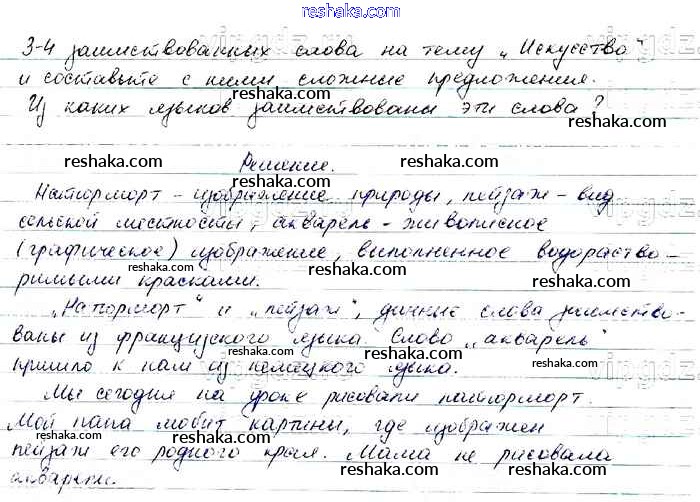 reshaka.com
3-4 заимствованных слова на тему „Искусство"
и составьте с ними сложные предложения.
Из каких языков заимствованы эти слова?
reshaka.com reshaka.com reshaka.com
Решение.
Натюрморт - изображение природы, пейзаж - вид
сельской местности, акварель - живописное
(графическое) изображение, выполненное водораство-
римыми красками.
„Натюрморт" и „пейзаж", данные слова заимство-
ваны из французского языка. Слово „акварель"
пришло к нам из немецкого языка.
Мы сегодня на уроке рисовали натюрморт.
Мой папа любит картины, где изображен
пейзаж его родного края. Мама не рисовала
акварелью.